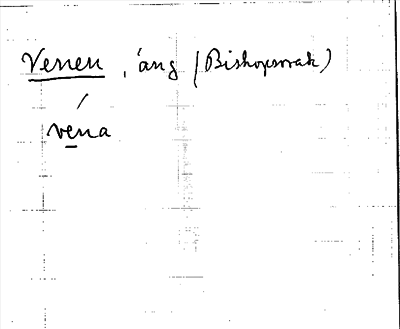 Venen, 'ang (Bishopsmak)
vena